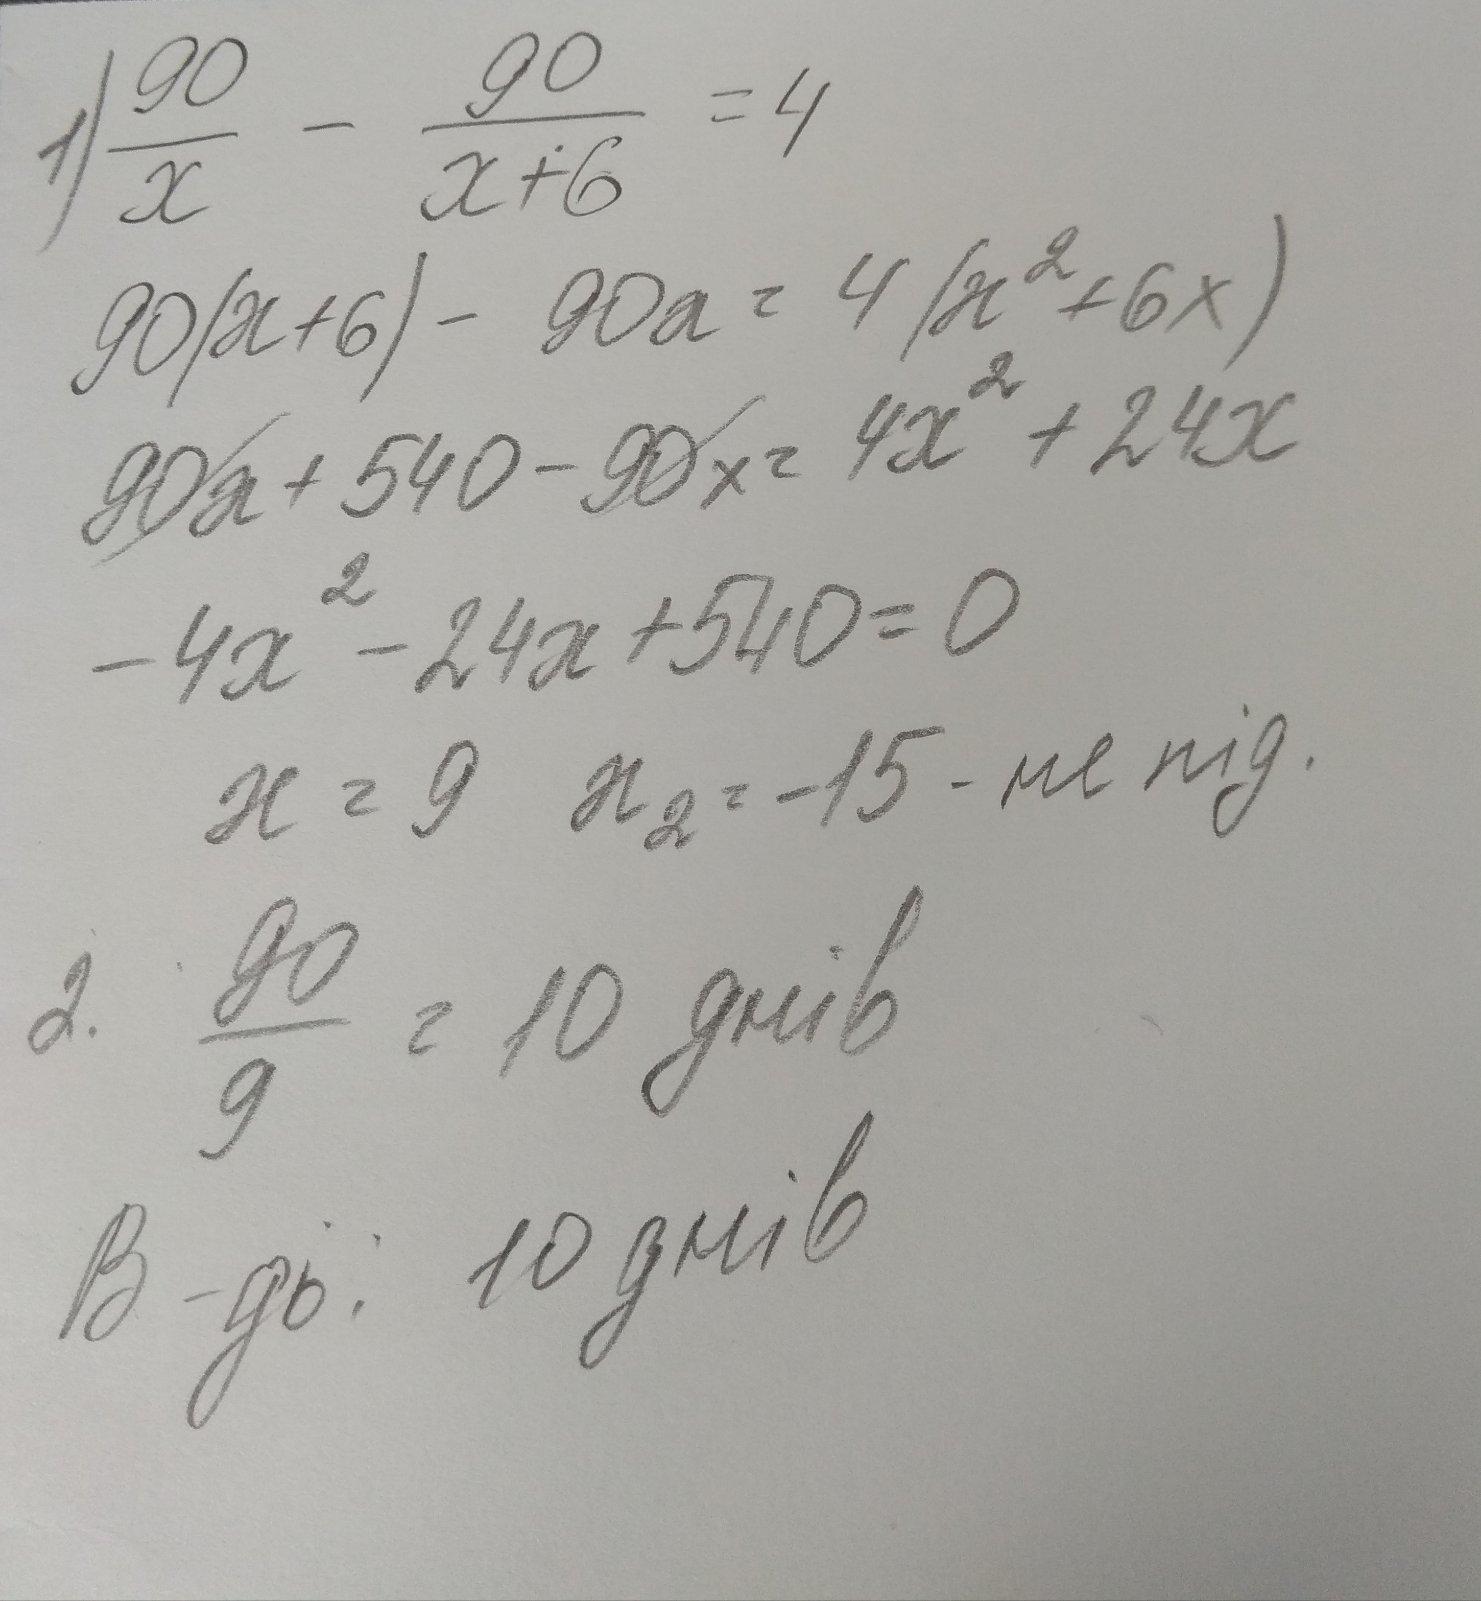 1) 90/x - 90/(x+6) = 4
90(x+6) - 90x = 4(x²+6x)
90x + 540 - 90x = 4x² + 24x
-4x² - 24x + 540 = 0
x = 9 x₂ = -15 - не під.
2. 90/9 = 10 днів
В-дь: 10 днів